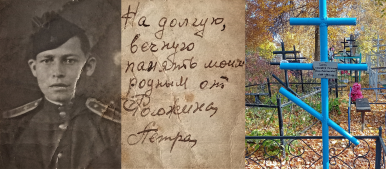 На долгую,
вечную
память моим
родным от
Положина
Петра